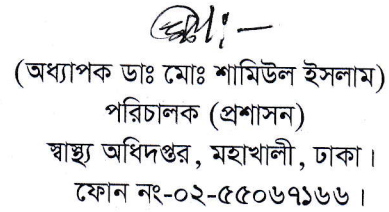 (অধ্যাপক ডাঃ মোঃ শামিউল ইসলাম)
পরিচালক (প্রশাসন)
স্বাস্থ্য অধিদপ্তর, মহাখালী, ঢাকা।
ফোন নং-০২-৫৫০৬৭১৬৬।